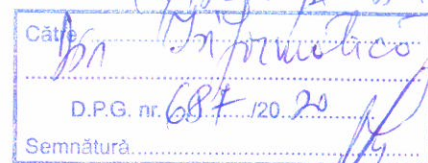 Către
Informatică
D.P.G. nr. 687 /20.20
Semnătură